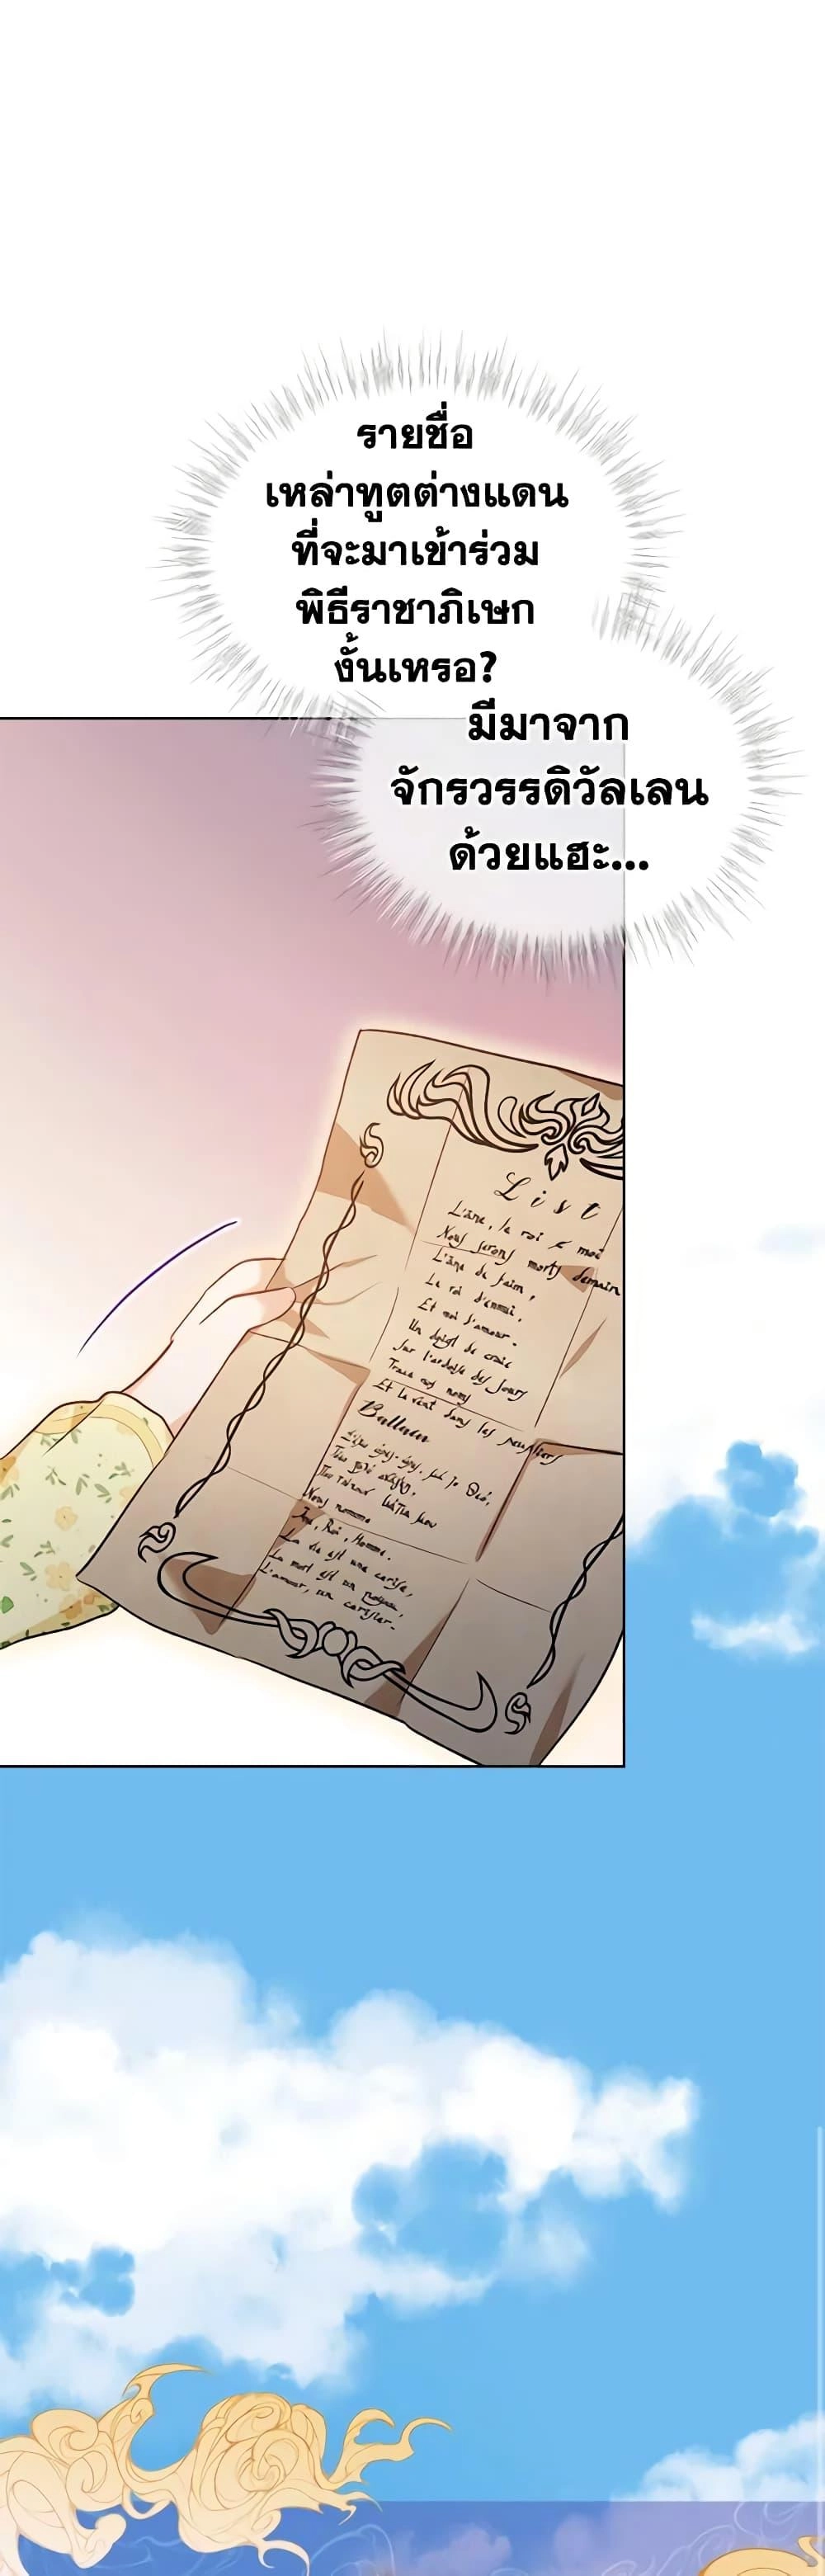 รายชื่อ
เหล่าทูตต่างแดน
ที่จะมาเข้าร่วม
พิธีราชาภิเษก
งั้นเหรอ?
มีมาจาก
จักรวรรดิวัลเลน
ด้วยแฮะ...
List
L'âne, le roi & moi
Nous serons morts demain
L'âne de faim,
Le roi d'ennui,
Et moi d'amour.
Un doigt de craie
Sur l'ardoise des jours
Trace nos noms
Et le vent dans les peupliers
Nous nomme
Âne, Roi, Homme.
La vie est une cerise,
La mort est un noyau,
L'amour, un cerisier.